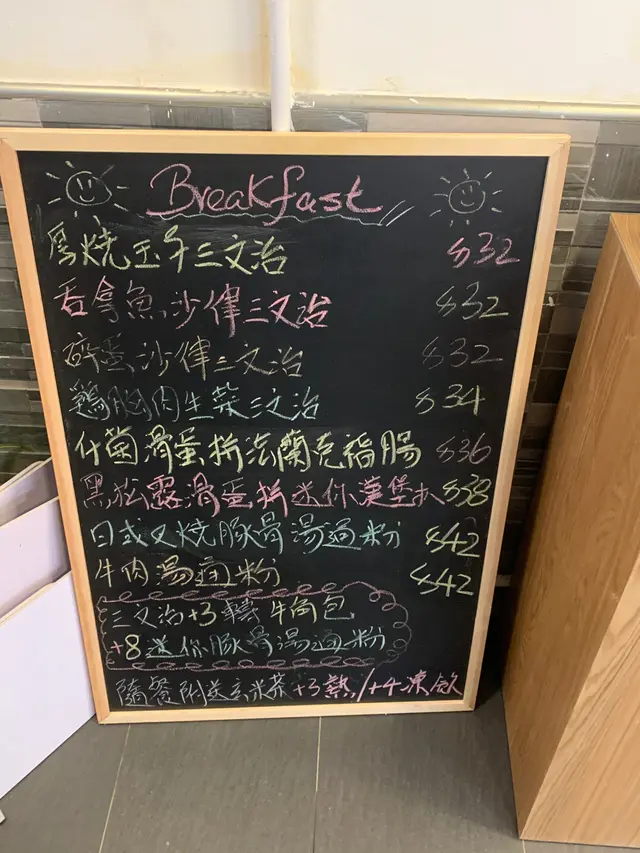 Breakfast
厚燒玉子三文治 $32
吞拿魚沙律三文治 $32
碎蛋沙律三文治 $32
鷄胸肉生菜三文治 $34
什菌滑蛋拼法蘭克福腸 $36
黑松露滑蛋拼迷你漢堡扒 $38
日式叉燒豚骨湯通粉 $42
牛肉湯通粉 $42
三文治+3轉牛角包
+8送迷你豚骨湯通粉
隨餐附送玄米茶 +3熱/+4凍飲